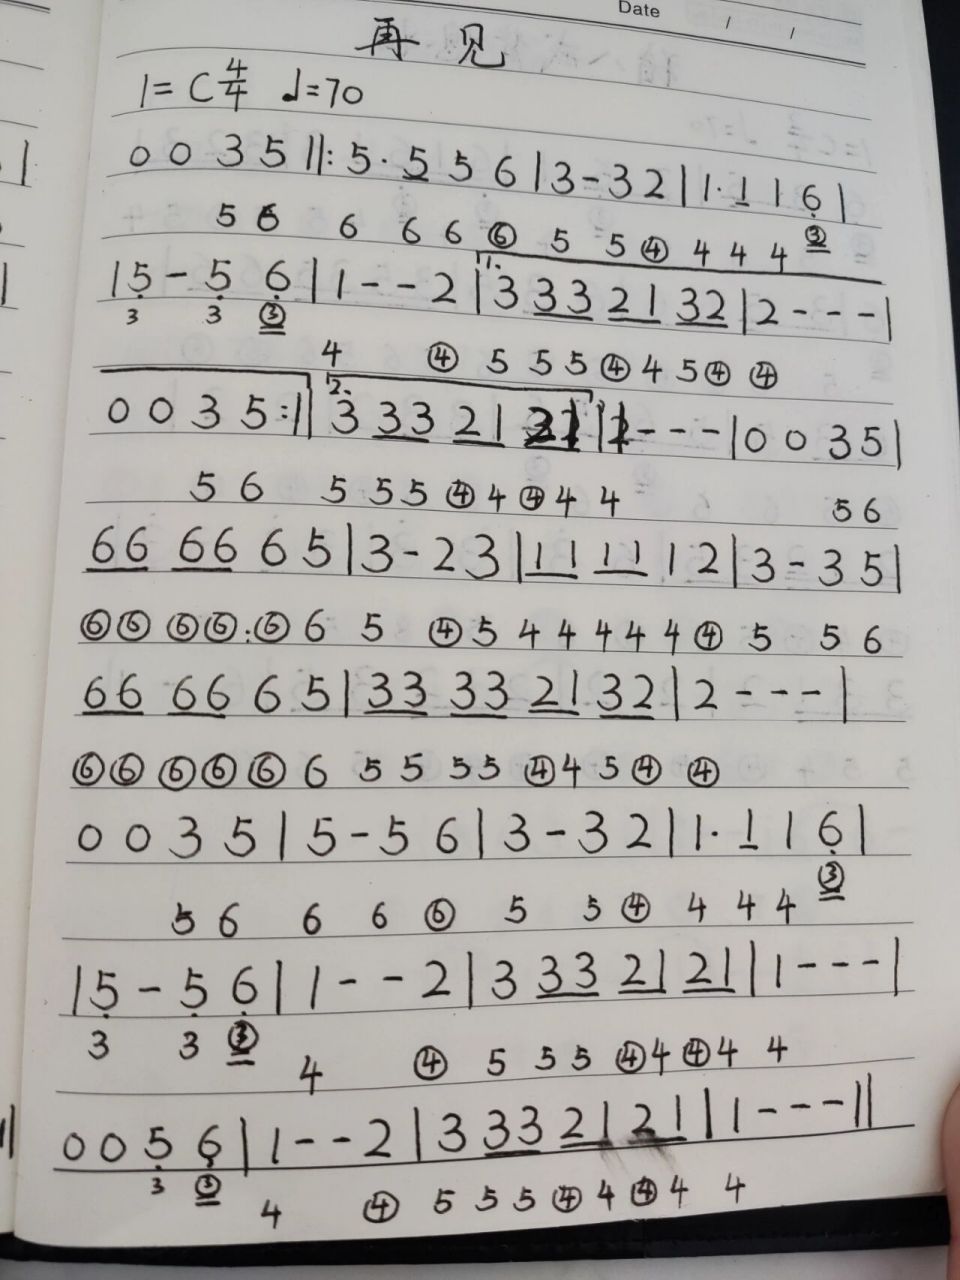 Date / /
再见
1=C 4/4 ♩=70
0 0 3 5 ‖: 5· 5 5 6 | 3 - 3 2 | 1· 1 1 6 |
5 6 6 6 6 ⑥ 5 5 ④ 4 4 4 ③
| 5 - 5 6 | 1 - - 2 | 1. 3 3 3 2 1 3 2 | 2 - - - |
3 3 ③ 4 ④ 5 5 5 ④ 4 5 ④ ④
0 0 3 5 :‖ 2. 3 3 3 2 1 2 1 | 1 - - - | 0 0 3 5 |
5 6 5 5 5 ④ 4 ④ 4 4 5 6
6 6 6 6 6 5 | 3 - 2 3 | 1 1 1 1 1 2 | 3 - 3 5 |
⑥ ⑥ ⑥ ⑥ ⑥ 6 5 ④ 5 4 4 4 4 4 ④ 5 5 6
6 6 6 6 6 5 | 3 3 3 3 2 1 3 2 | 2 - - - |
⑥ ⑥ ⑥ ⑥ ⑥ 6 5 5 5 5 ④ 4 5 ④ ④
0 0 3 5 | 5 - 5 6 | 3 - 3 2 | 1· 1 1 6 |
5 6 6 6 ⑥ 5 5 ④ 4 4 4 ③
| 5 - 5 6 | 1 - - 2 | 3 3 3 2 1 2 1 | 1 - - - |
3 3 ③ 4 ④ 5 5 5 ④ 4 ④ 4 4
0 0 5 6 | 1 - - 2 | 3 3 3 2 1 2 1 | 1 - - - ‖
3 ③ 4 ④ 5 5 5 ④ 4 ④ 4 4